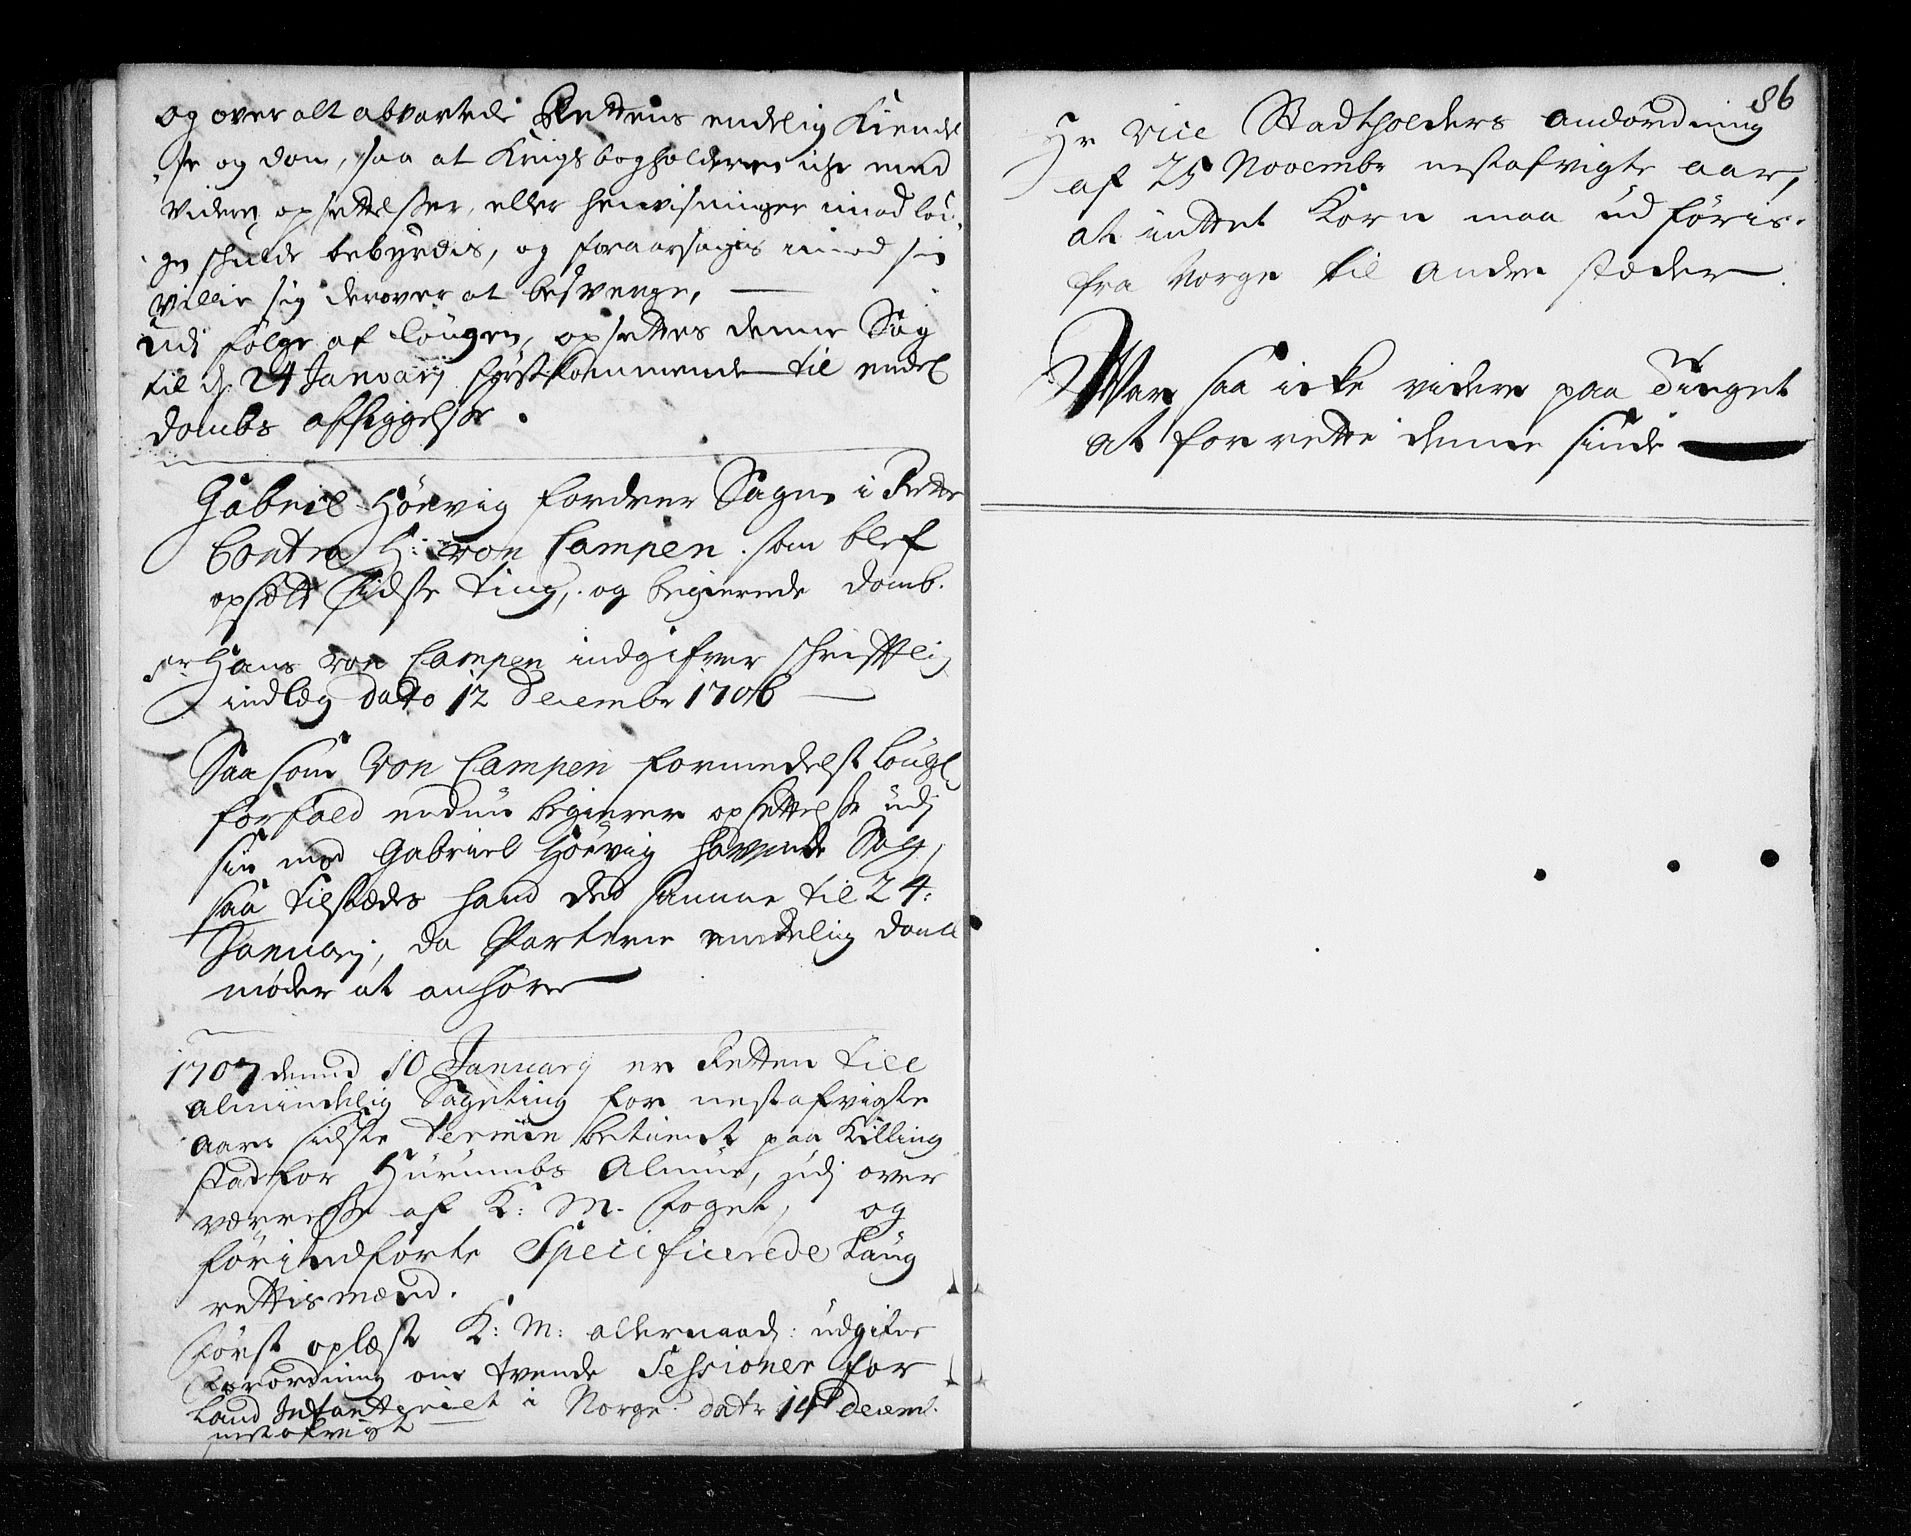 og over alt abvartede Rettens endelig Kiendel
se og dom, saa at Krigsbogholderen iche med
videre opsettelser, eller henvisninger imod lou
gen schulde bebyrdis, og foraarsagis imod sin
villie sig derover at besverge,
udj følge af lougen, opsettes denne Sag
til d. 24 Januarij førstkommende til endel
dombs affsiggelse.
Gabriel Hörvig fordrer Sagen i Rette
Contra H: von Campen. som blef
opsatt sidste ting, og begierede domb.
Sr Hans von Campen indgifver schrifftlig
indlæg dato 12 Decembr 1706
Saasom Von Campen formedelst lougl
forfald endnu begierer opsettelse udj
sin med Gabriel Hörvig hafvende Sag,
saa tilstædes hand det samme til 24:
Januarij, da Parterne endelig domb
møder at anhøre
1707 dend 10 Januarij er Retten till
almindelig Sageting for nestafvigte
aars sidste termin betient paa Killing
stad for Hurumbs Almue, udj over
værrelse af K: M. Foget, og
för indförte Specificerede Laug
rettismænd.
Først oplæst K: M: allernaad: udgifne
Forordning om tvende Sessioner for
Land Infanteriet i Norge. dat 14 Decemb.
nestafvigt
86
Hr Vice Stadtholders Anordning
af 25 Novembr nestafvigte aar,
at intet Korn maa udføris
fra Norge til andre stæder.
War saa icke videre paa Tinget
at forrette denne sinde